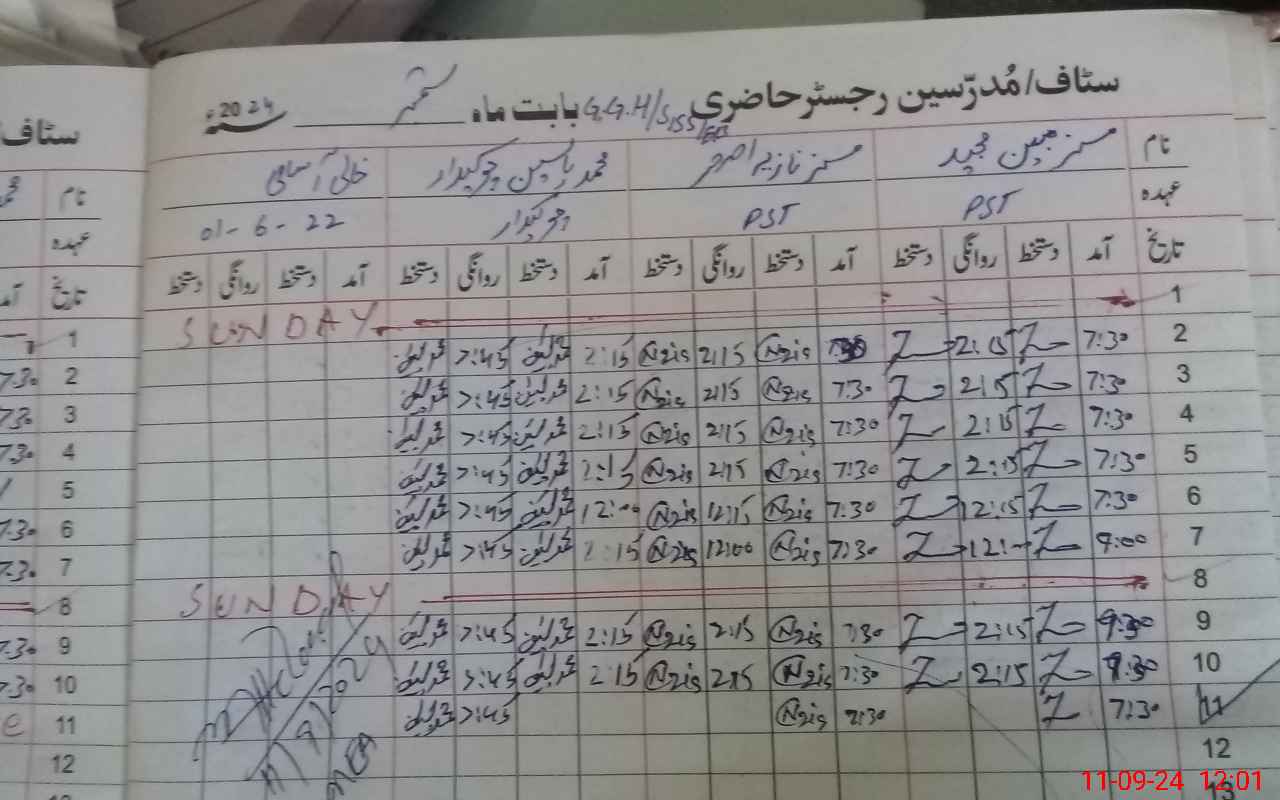 سٹاف/مُدرّسین رجسٹر حاضری G.G.H/S بابت ماہ ستمبر 2024ء
سٹاف
نام مسز مبین مجید مسز نازیہ اصغر محمد یاسین چوکیدار خالی آسامی
نام
عہدہ PST PST چوکیدار 01-6-22
عہدہ
تاریخ آمد دستخط روانگی دستخط آمد دستخط روانگی دستخط آمد دستخط روانگی دستخط آمد دستخط روانگی دستخط
تاریخ
1 SUNDAY
1
2 7:30 Z 2:15 Z 7:30 Nzis 2:15 Nzis 2:15 محمد یاسین 7:45 محمد یاسین
2 7:30
3 7:30 Z 2:15 Z 7:30 Nzis 2:15 Nzis 2:15 محمد یاسین 7:45 محمد یاسین
3 7:30
4 7:30 Z 2:15 Z 7:30 Nzis 2:15 Nzis 2:15 محمد یاسین 7:45 محمد یاسین
4 7:30
5 7:30 Z 2:15 Z 7:30 Nzis 2:15 Nzis 2:15 محمد یاسین 7:45 محمد یاسین
5
6 7:30 Z 12:15 Z 7:30 Nzis 12:15 Nzis 12:00 محمد یاسین 7:45 محمد یاسین
6 7:30
7 9:00 Z 12:00 Z 7:30 Nzis 12:00 Nzis 2:15 محمد یاسین 7:45 محمد یاسین
7 7:30
8 SUNDAY
8
9 7:30 Z 2:15 Z 7:30 Nzis 2:15 Nzis 2:15 محمد یاسین 7:45 محمد یاسین
9 7:30
10 7:30 Z 2:15 Z 7:30 Nzis 2:15 Nzis 2:15 محمد یاسین 7:45 محمد یاسین
10 7:30
11 7:30 Z 7:30 Nzis 7:45 محمد یاسین
11
11/9/2024
MEA
12
12
13
11-09-24 12:01